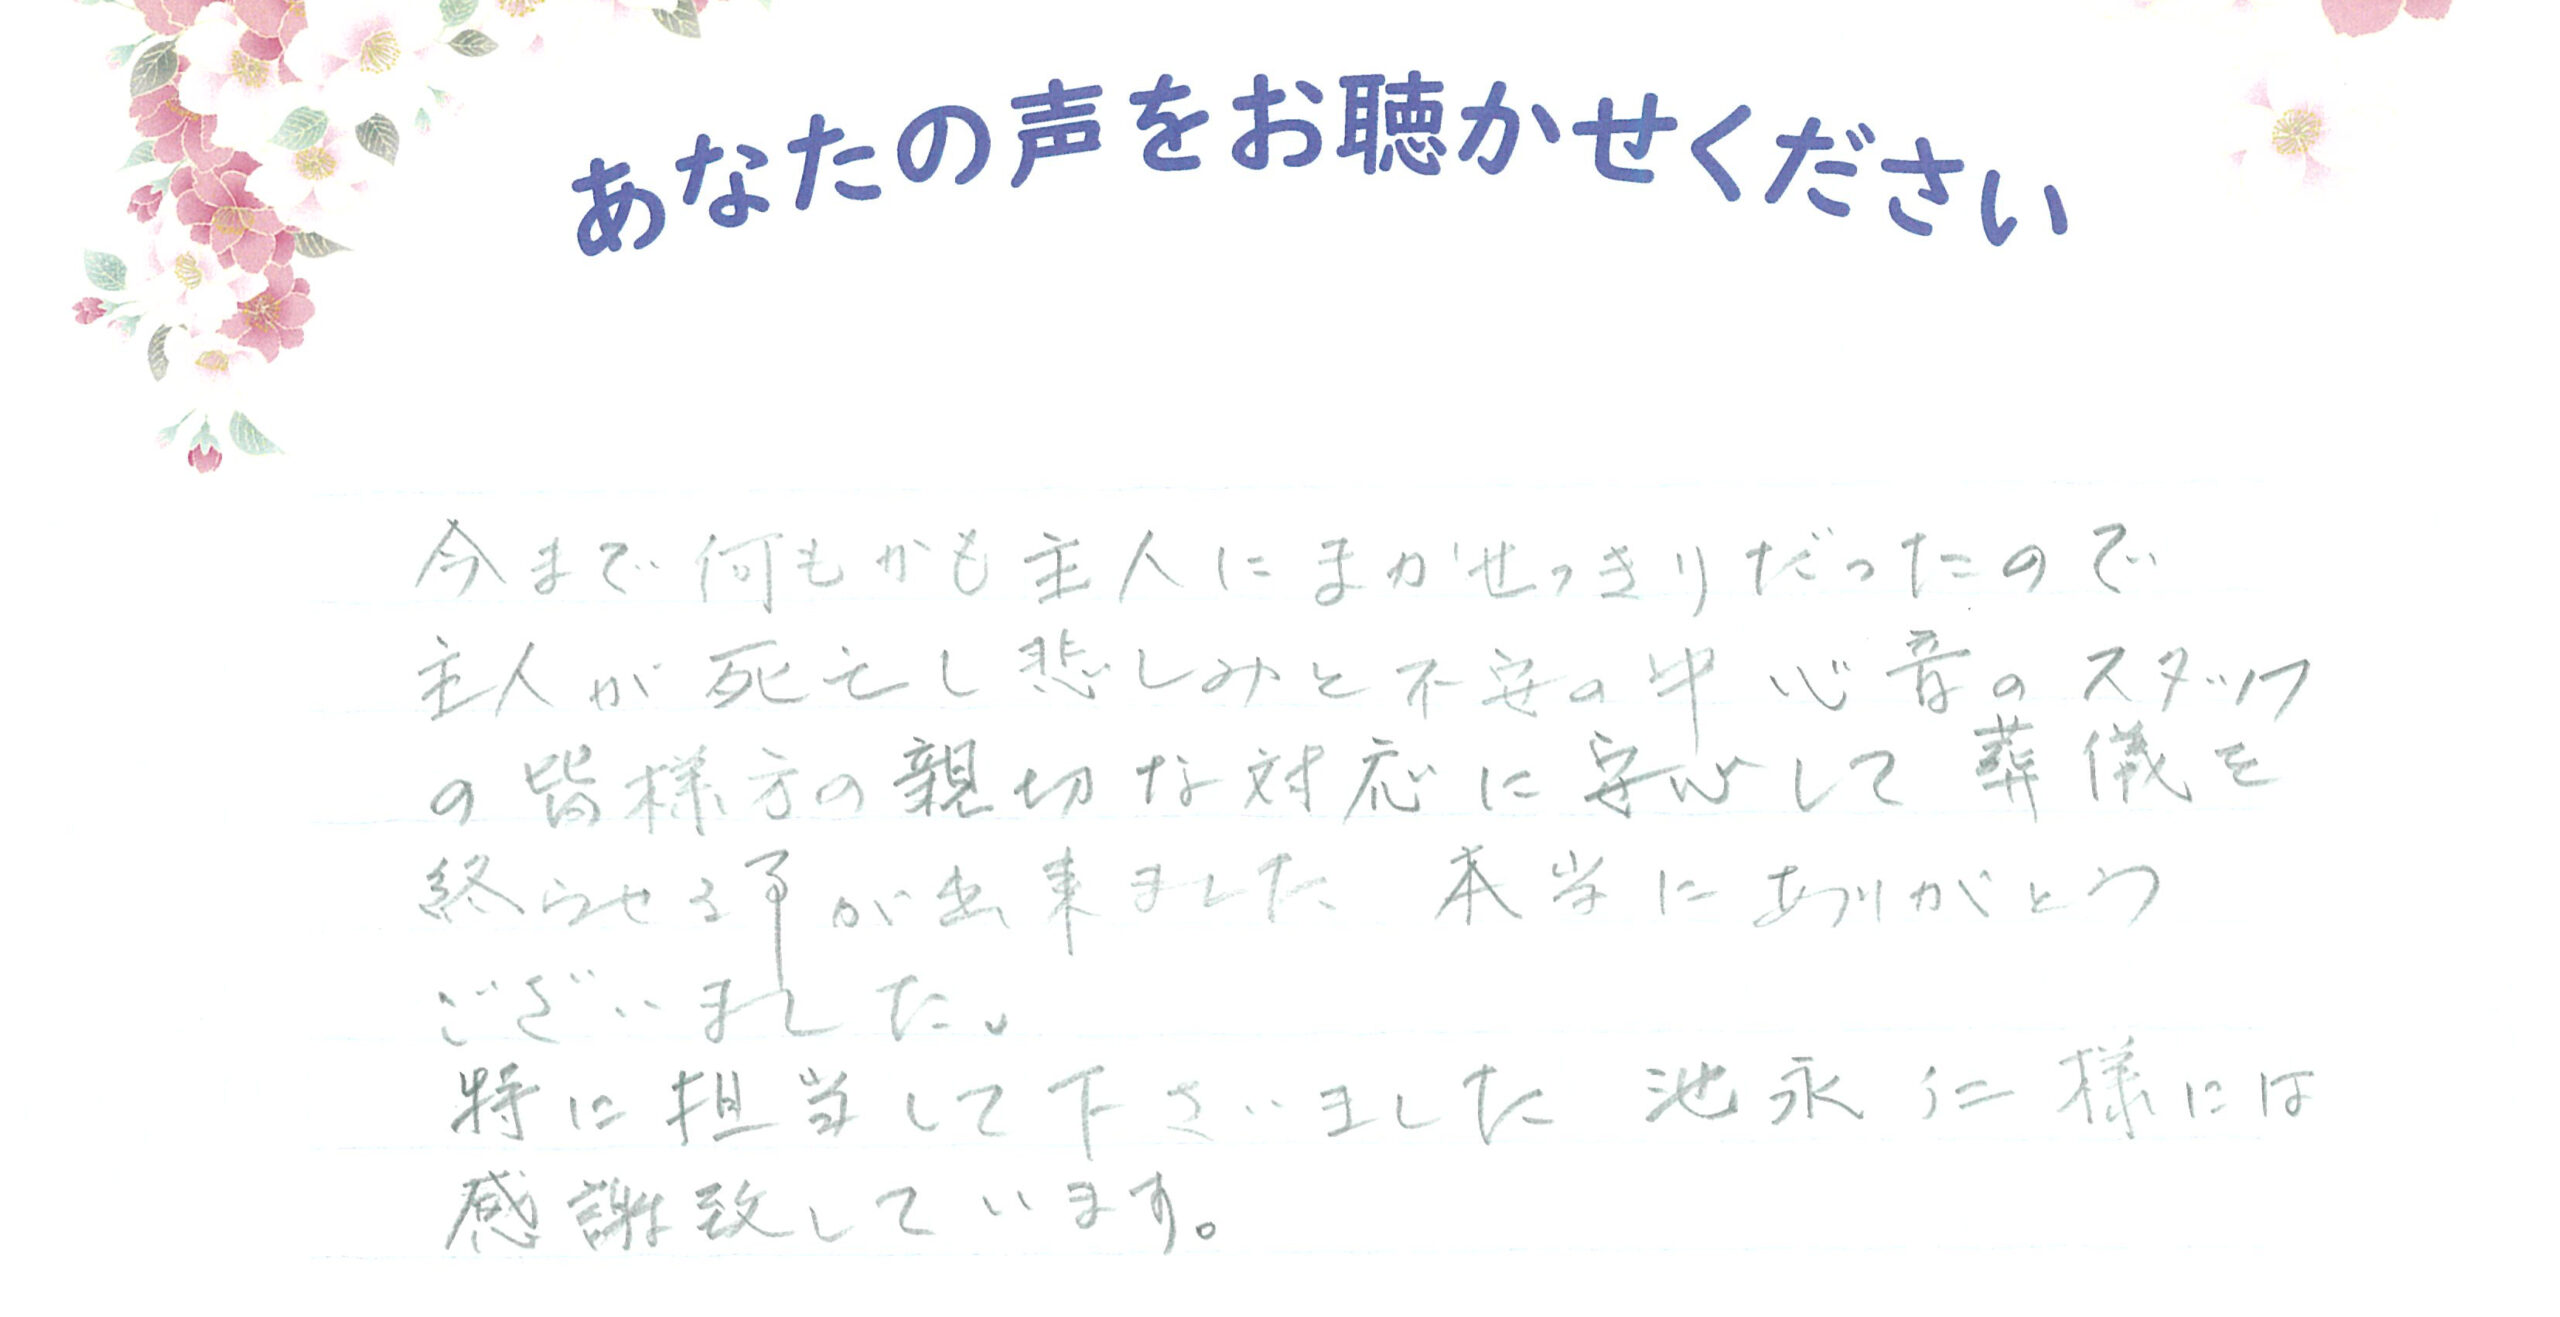 あなたの声をお聴かせください
今まで何もかも主人にまかせっきりだったので
主人が死亡し悲しみと不安の中 心音のスタッフ
の皆様方の親切な対応に安心して葬儀を
終らせる事が出来ました 本当にありがとう
ございました。
特に担当して下さいました 池永仁様には
感謝致しています。